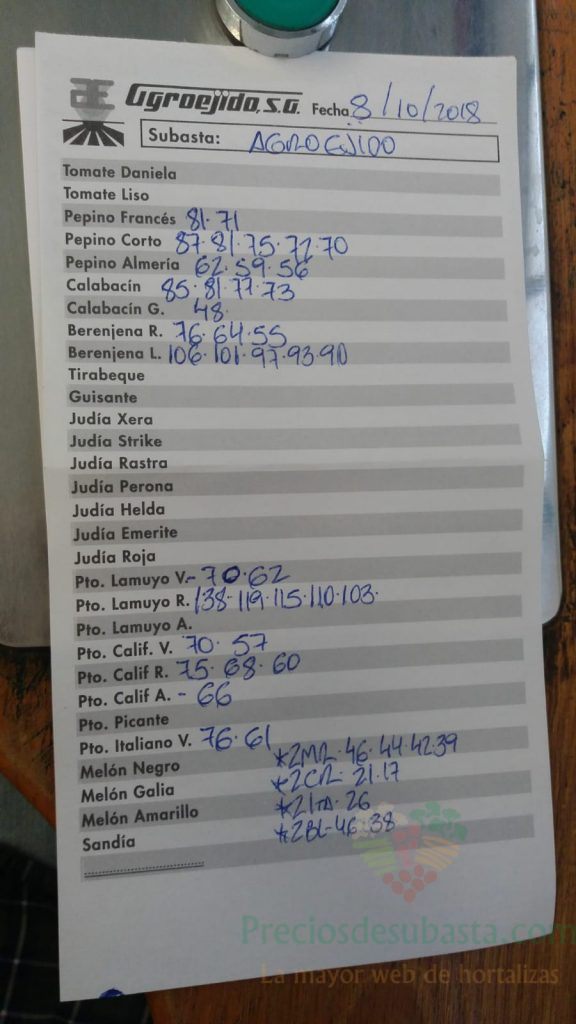 Agroejido, S.A. Fecha 8/10/2018
Subasta: AGROEJIDO
Tomate Daniela
Tomate Liso
Pepino Francés 81·71
Pepino Corto 87·81·75·72·70
Pepino Almería 62·59·56
Calabacín 85·81·77·73
Calabacín G. 48·
Berenjena R. 76·64·55
Berenjena L. 106·101·97·93·90
Tirabeque
Guisante
Judía Xera
Judía Strike
Judía Rastra
Judía Perona
Judía Helda
Judía Emerite
Judía Roja
Pto. Lamuyo V.- 70·62
Pto. Lamuyo R. 138·119·115·110·103·
Pto. Lamuyo A.
Pto. Calif. V. 70· 57
Pto. Calif R. 75·68·60
Pto. Calif A. - 66
Pto. Picante
Pto. Italiano V. 76·61
Melón Negro *2MR·46·44·42·39
Melón Galia *2CR· 21·17
Melón Amarillo *2ITA·26
Sandía *2BL·46·38
Preciosdesubasta.com
La mayor web de hortalizas